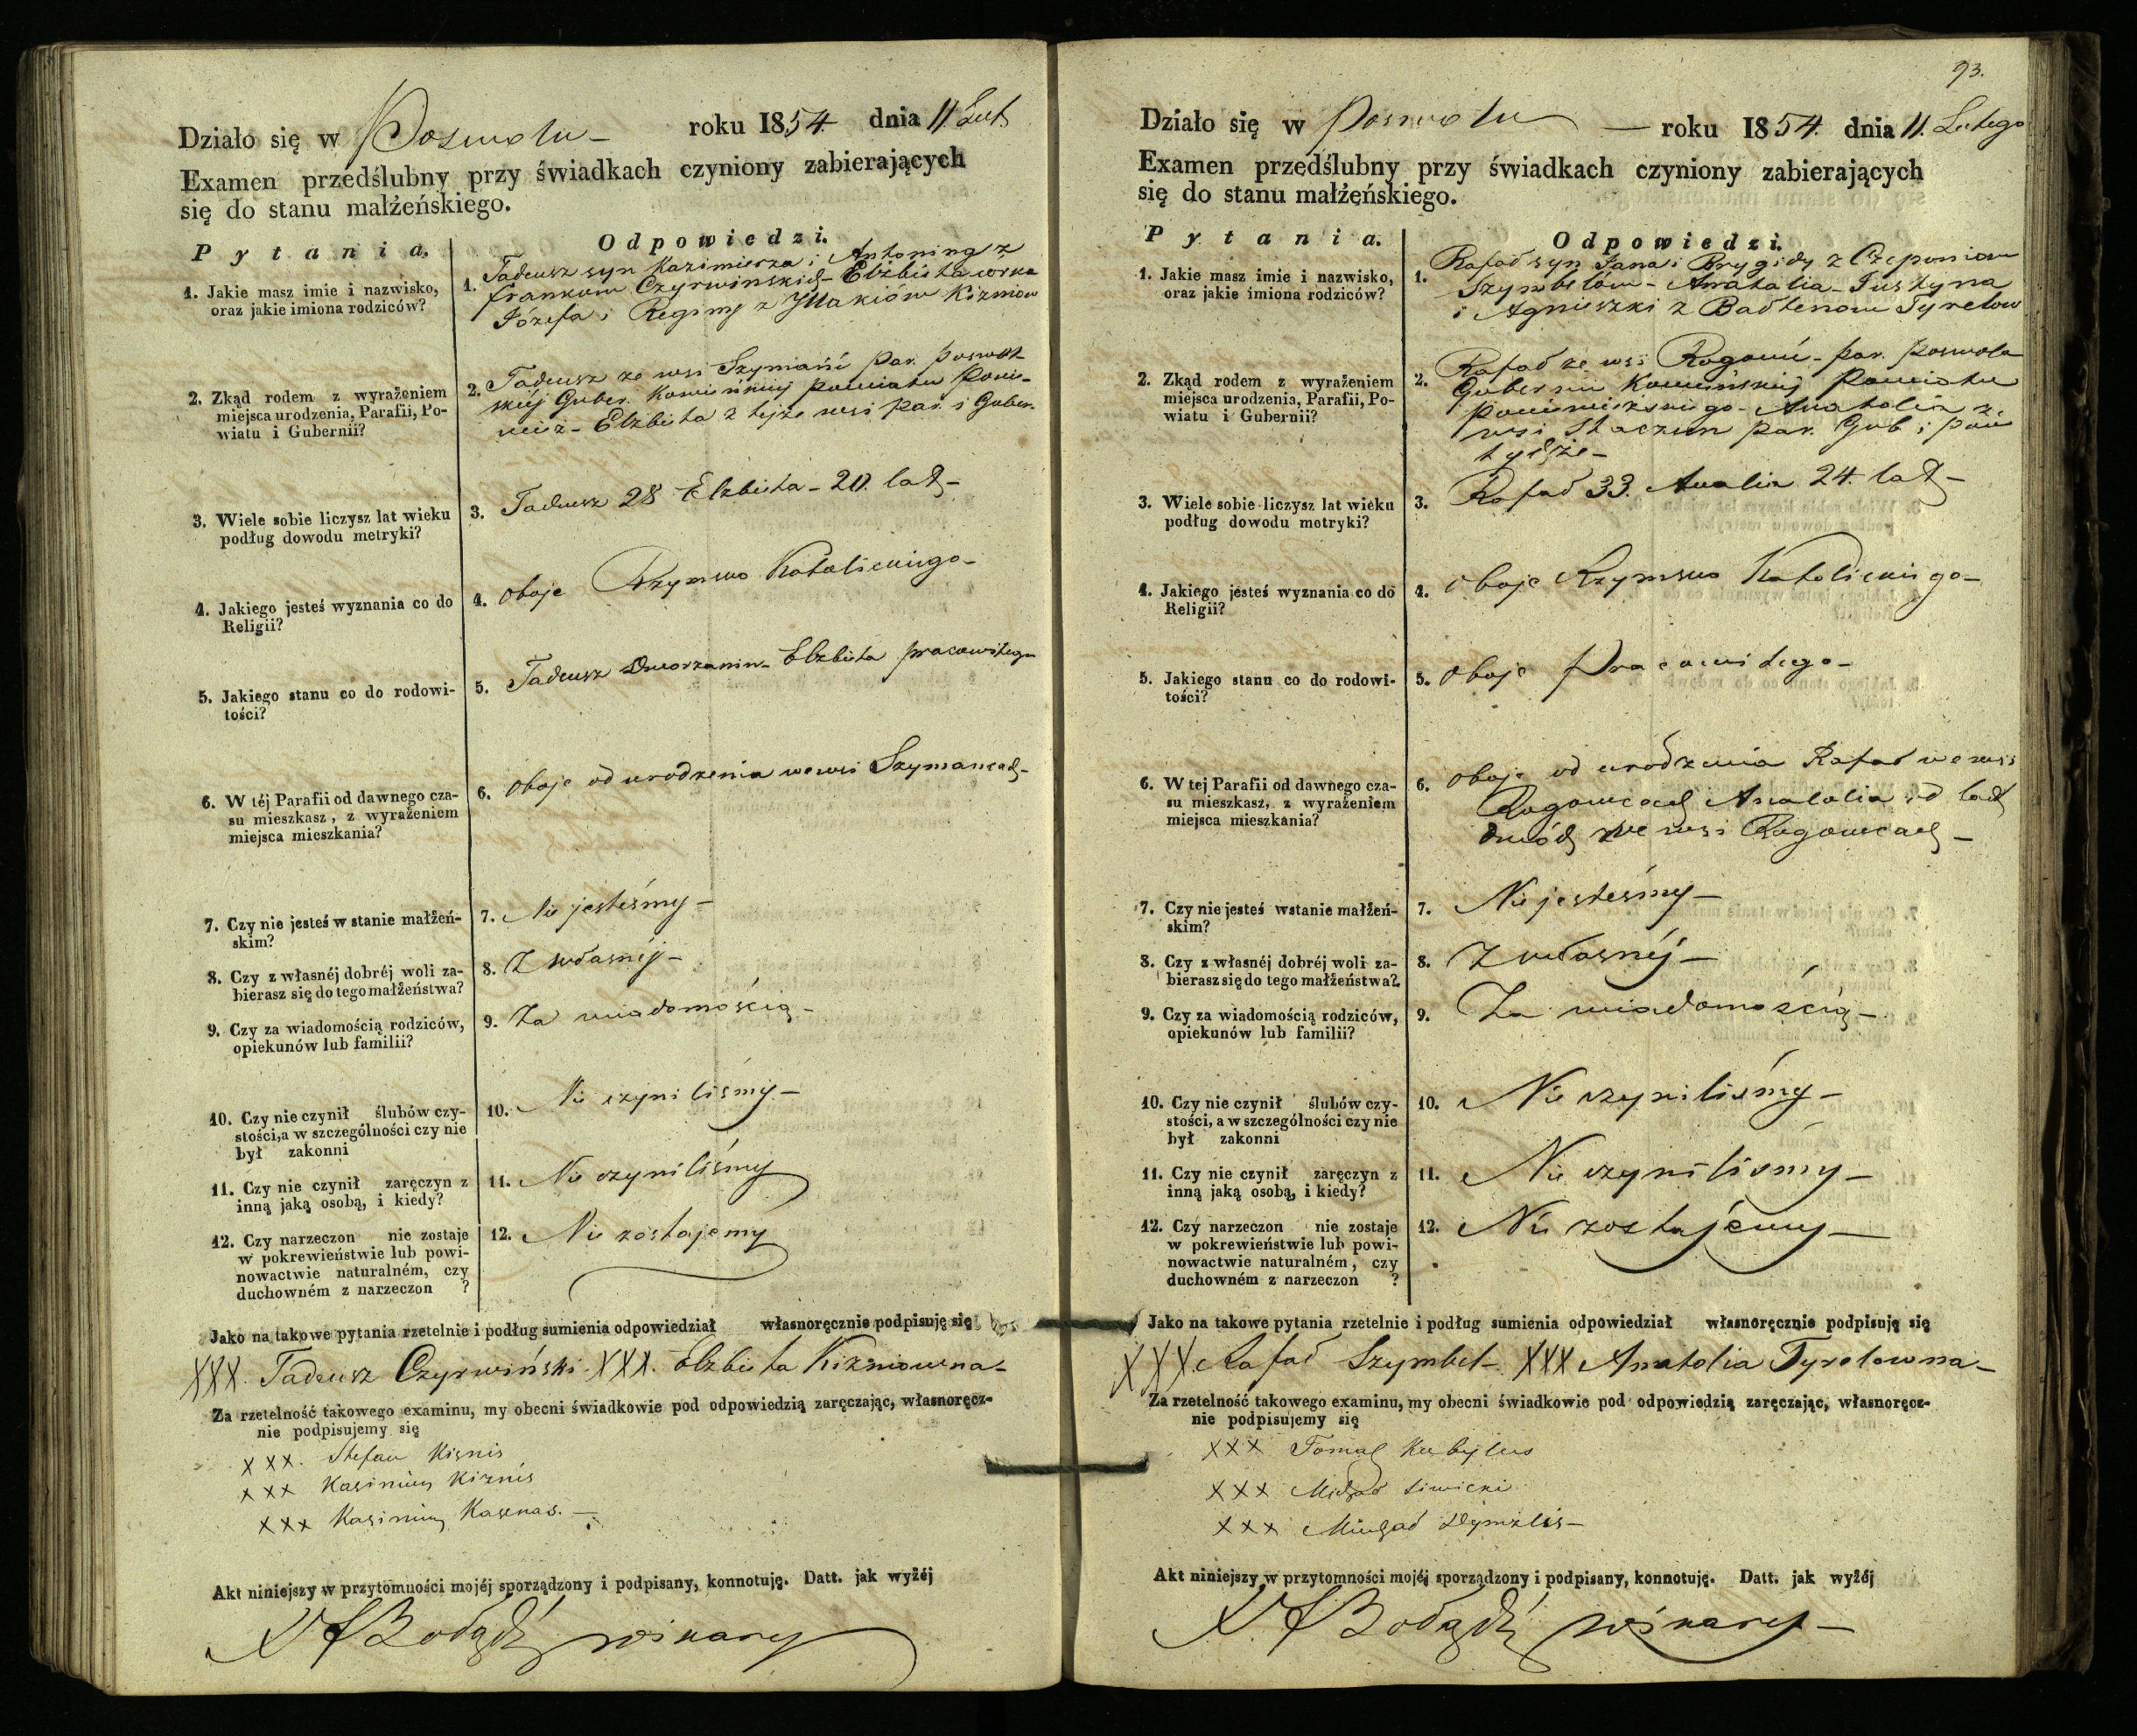 Działo się w Poswolu – roku 1854 dnia 11 Lut
Examen przedślubny przy świadkach czyniony zabierających
się do stanu małżeńskiego.
Pytania.
Odpowiedzi.
1. Jakie masz imie i nazwisko,
oraz jakie imiona rodziców?
1. Tadeusz syn Kazimierza i Antoniny z
Franków Czyrwińskich – Elżbieta córka
Józefa i Reginy z Kizniów
2. Zkąd rodem z wyrażeniem
miejsca urodzenia, Parafii, Po-
wiatu i Gubernii?
2. Tadeusz ze wsi Szymanii par. Poswol
skiéj Guber. Kowieńskiéj Powiatu Poni-
wież – Elżbieta z tejże wsi par. i Guber.
3. Wiele sobie liczysz lat wieku
podług dowodu metryki?
3. Tadeusz 28 Elżbieta – 20. lat –
4. Jakiego jesteś wyznania co do
Religii?
4. Oboje Rzymsko Katolickiego –
5. Jakiego stanu co do rodowi-
tości?
5. Tadeusz Dworzanin – Elżbieta pracowitego
6. W téj Parafii od dawnego cza-
su mieszkasz, z wyrażeniem
miejsca mieszkania?
6. Oboje od urodzenia we wsi Szymancach –
7. Czy nie jesteś w stanie małżeń-
skim?
7. Nie jesteśmy –
8. Czy z własnéj dobréj woli za-
bierasz się do tego małżeństwa?
8. Z własnéj –
9. Czy za wiadomością rodziców,
opiekunów lub familii?
9. Za wiadomością –
10. Czy nie czynił ślubów czy-
stości, a w szczególności czy nie
był zakonni
10. Nie czyniliśmy –
11. Czy nie czynił zaręczyn z
inną jaką osobą, i kiedy?
11. Nie czyniliśmy
12. Czy narzeczon nie zostaje
w pokrewieństwie lub powi-
nowactwie naturalném, czy
duchowném z narzeczon ?
12. Nie zostajemy
Jako na takowe pytania rzetelnie i podług sumienia odpowiedział własnoręcznie podpisuję się
XXX. Tadeusz Czyrwiński. XXX. Elżbieta Kizniowna –
Za rzetelność takowego examinu, my obecni świadkowie pod odpowiedzią zaręczając, własnoręcz-
nie podpisujemy się
XXX. Stefan Kiznis
XXX Kazimierz Kiznis
XXX Kazimierz Kasenas. –
Akt niniejszy w przytomności mojéj sporządzony i podpisany, konnotuję. Datt. jak wyżéj
X wikary
93.
Działo się w Poswolu — roku 1854. dnia 11. Lutego
Examen przedślubny przy świadkach czyniony zabierających
się do stanu małżeńskiego.
Pytania.
Odpowiedzi.
1. Jakie masz imie i nazwisko,
oraz jakie imiona rodziców?
1. Rafał syn Jana i Brygidy z Czeponiow
Szymbelów – Anatalia – Justyna
i Agnieszki z Bałtenow Tyrelow
2. Zkąd rodem z wyrażeniem
miejsca urodzenia, Parafii, Po-
wiatu i Gubernii?
2. Rafał ze wsi – par. Poswola
Gubernii Kowieńskiéj Powiatu
Poniewiezskiego – Anatolia z
wsi par. Gub i pow
tychże –
3. Wiele sobie liczysz lat wieku
podług dowodu metryki?
3. Rafał 33. Analia 24. lat –
4. Jakiego jesteś wyznania co do
Religii?
4. Oboje Rzymsko Katolickiego –
5. Jakiego stanu co do rodowi-
tości?
5. Oboje Pracowitego –
6. W tej Parafii od dawnego cza-
su mieszkasz, z wyrażeniem
miejsca mieszkania?
6. Oboje od urodzenia Rafał we wsi
Rogowcach Anatolia od lat
dwóch we wsi Rogowcach –
7. Czy nie jesteś wstanie małżeń-
skim?
7. Nie jesteśmy –
8. Czy z własnéj dobréj woli za-
bierasz się do tego małżeństwa?
8. Z własnéj –
9. Czy za wiadomością rodziców,
opiekunów lub familii?
9. Za wiadomością –
10. Czy nie czynił ślubów czy-
stości, a w szczególności czy nie
był zakonni
10. Nie czyniliśmy –
11. Czy nie czynił zaręczyn z
inną jaką osobą, i kiedy?
11. Nie czyniliśmy –
12. Czy narzeczon nie zostaje
w pokrewieństwie lub powi-
nowactwie naturalném, czy
duchowném z narzeczon ?
12. Nie zostajemy –
Jako na takowe pytania rzetelnie i podług sumienia odpowiedział własnoręcznie podpisuję się
XXX Rafał Szymbel – XXX Anatolia Tyrelowna –
Za rzetelność takowego examinu, my obecni świadkowie pod odpowiedzią zaręczając, własnoręcz-
nie podpisujemy się
XXX Tomasz Kubylus
XXX Michał Siwicki
XXX Michał –
Akt niniejszy w przytomności mojéj sporządzony i podpisany, konnotuję. Datt. jak wyżéj
X wikary –